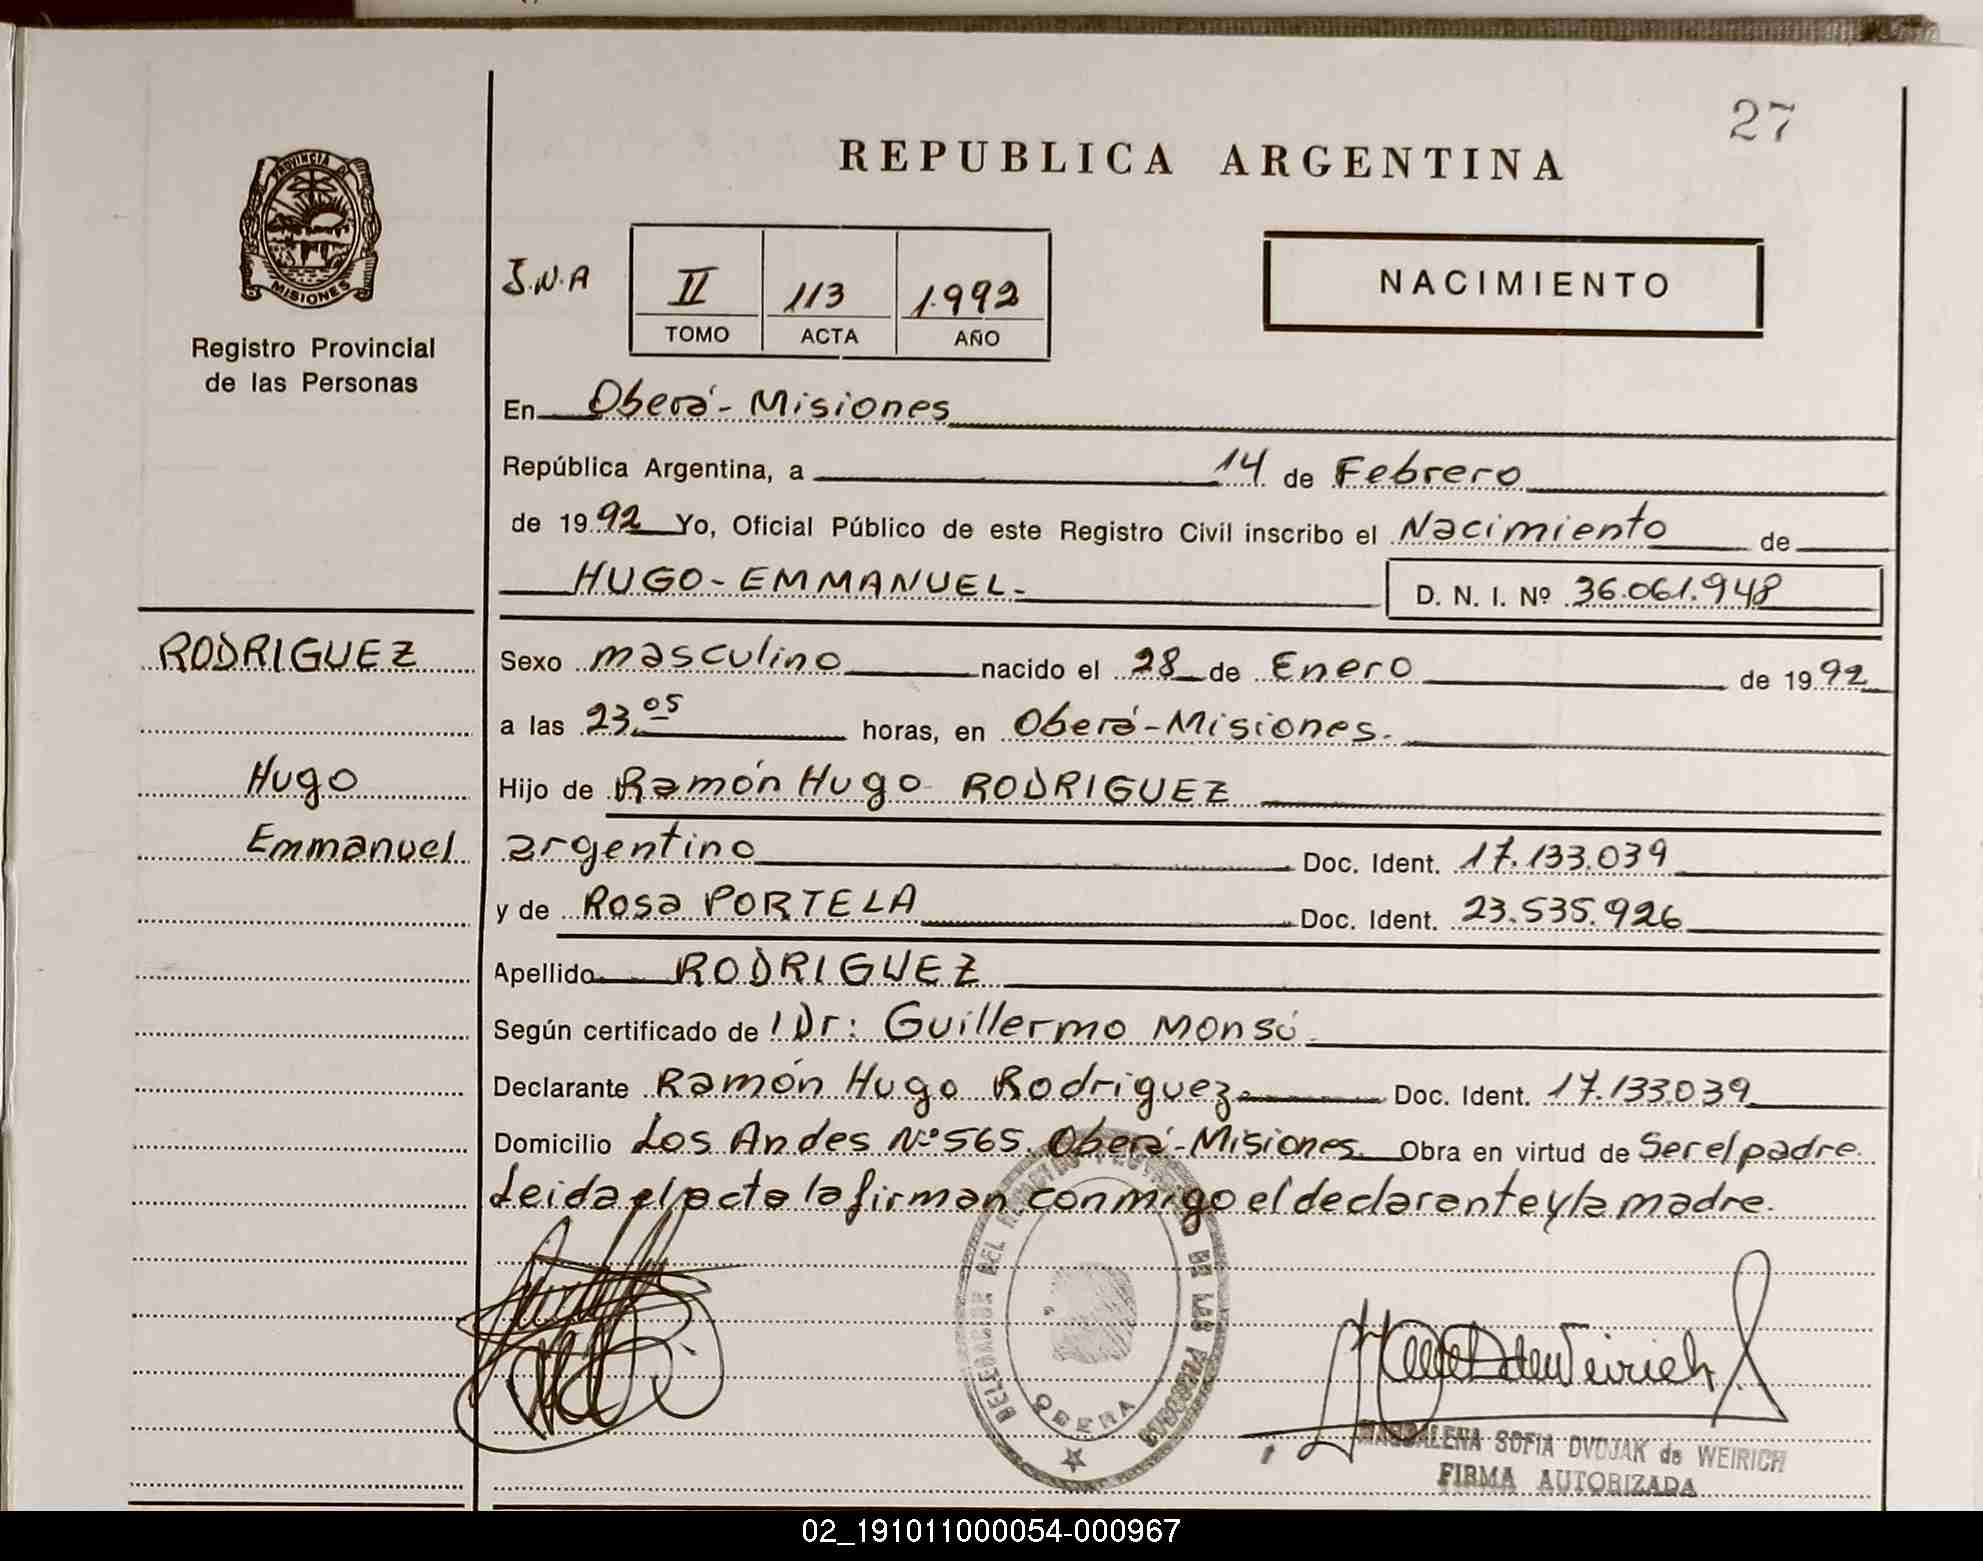 27
REPUBLICA ARGENTINA
PROVINCIA DE
MISIONES
Registro Provincial
de las Personas
J.N.A
II 113 1.992
TOMO ACTA AÑO
NACIMIENTO
En Oberá - Misiones
República Argentina, a 14 de Febrero
de 1992 Yo, Oficial Público de este Registro Civil inscribo el Nacimiento de
HUGO - EMMANUEL.-
D. N. I. Nº 36.061.948
RODRIGUEZ
Sexo masculino nacido el 28 de Enero de 1992
a las 23.05 horas, en Oberá - Misiones.
Hugo
Hijo de Ramón Hugo RODRIGUEZ
Emmanuel
argentino Doc. Ident. 17.133.039
y de Rosa PORTELA Doc. Ident. 23.535.926
Apellido RODRIGUEZ
Según certificado de l Dr: Guillermo Monsó
Declarante Ramón Hugo Rodriguez Doc. Ident. 17.133.039
Domicilio Los Andes Nº 565. Oberá - Misiones. Obra en virtud de Ser el padre.
Leida el acta la firman conmigo el declarante y la madre.
DELEGACION DEL REGISTRO PROVINCIAL DE LAS PERSONAS
OBERA
MAGDALENA SOFIA DVOJAK de WEIRICH
FIRMA AUTORIZADA
02_191011000054-000967